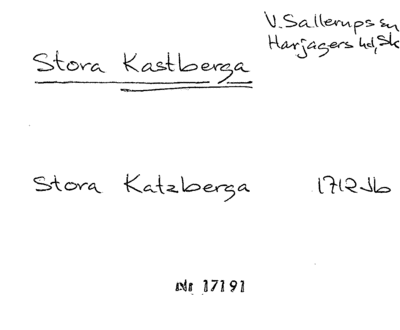 V. Sallerups sn
Harjagers hd, Sk
Stora Kastberga
Stora Katzberga 1712 Jb
Nr 17191